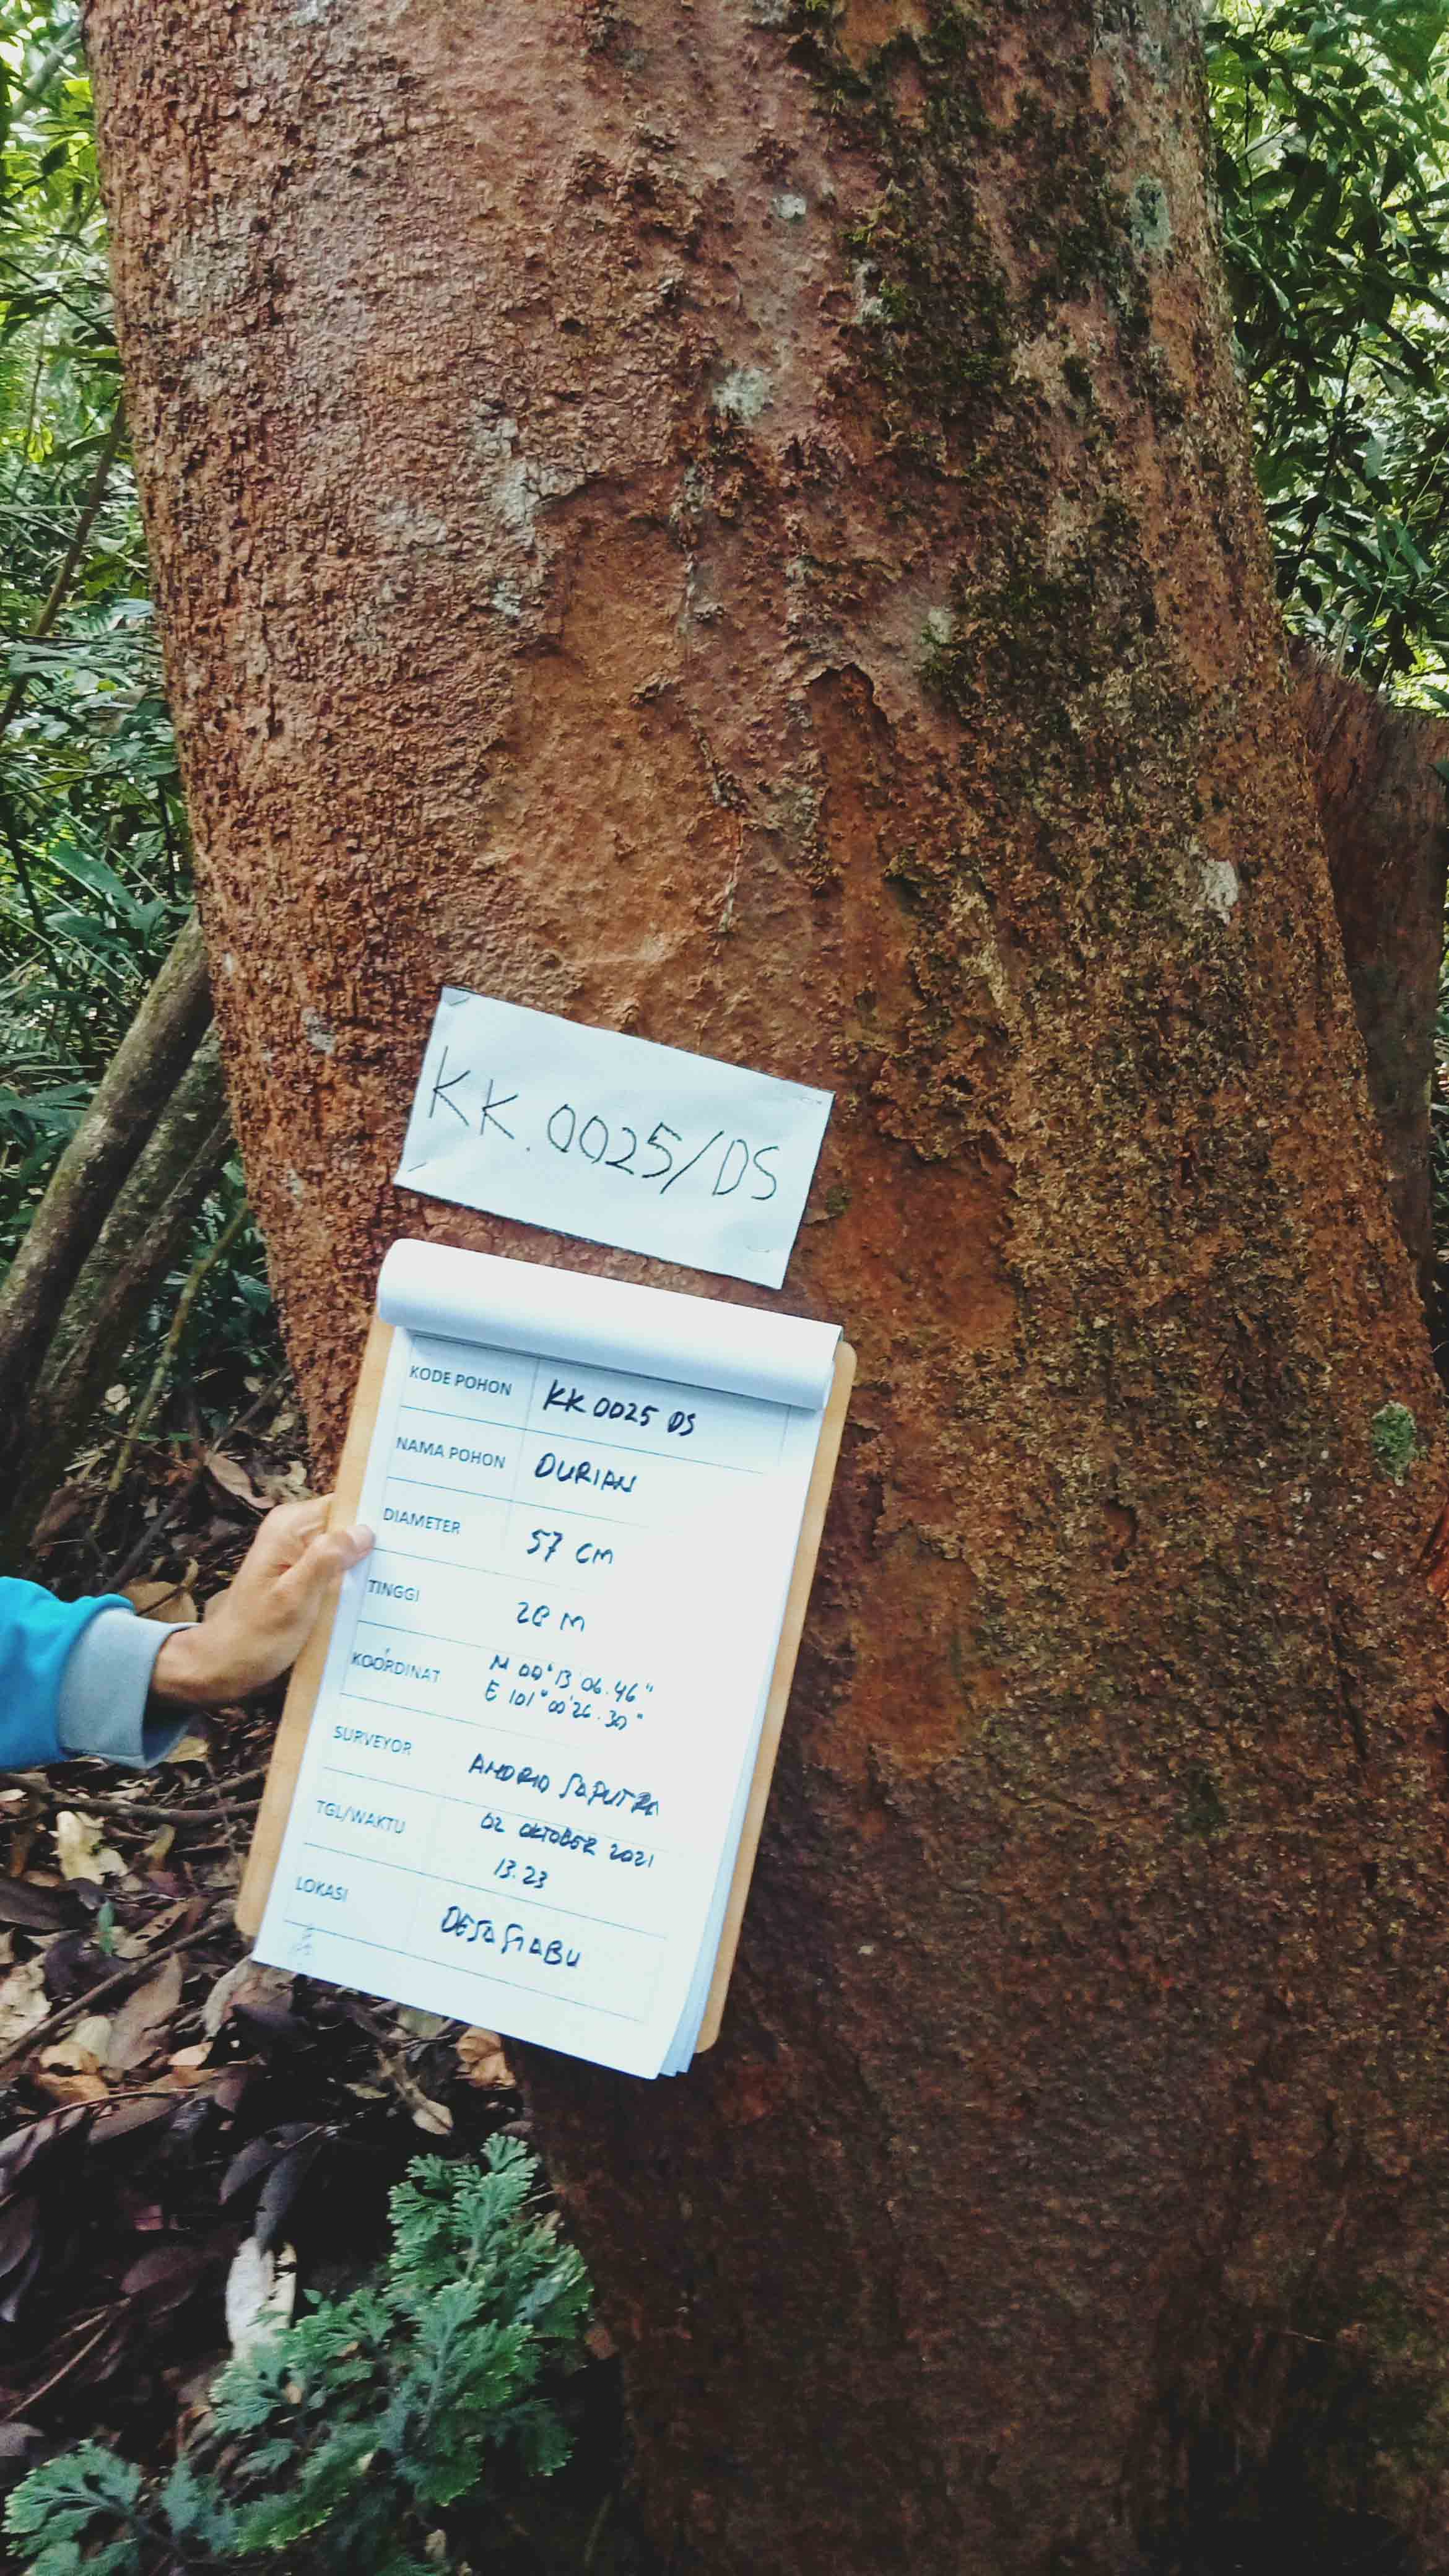 KK.0025/DS
KODE POHON KK 0025 DS
NAMA POHON DURIAN
DIAMETER 57 CM
TINGGI 28 M
KOORDINAT N 00°13'06.46"
E 101°00'26.30"
SURVEYOR ANDRIO SAPUTRA
TGL/WAKTU 02 OKTOBER 2021
13.23
LOKASI DESA SIABU